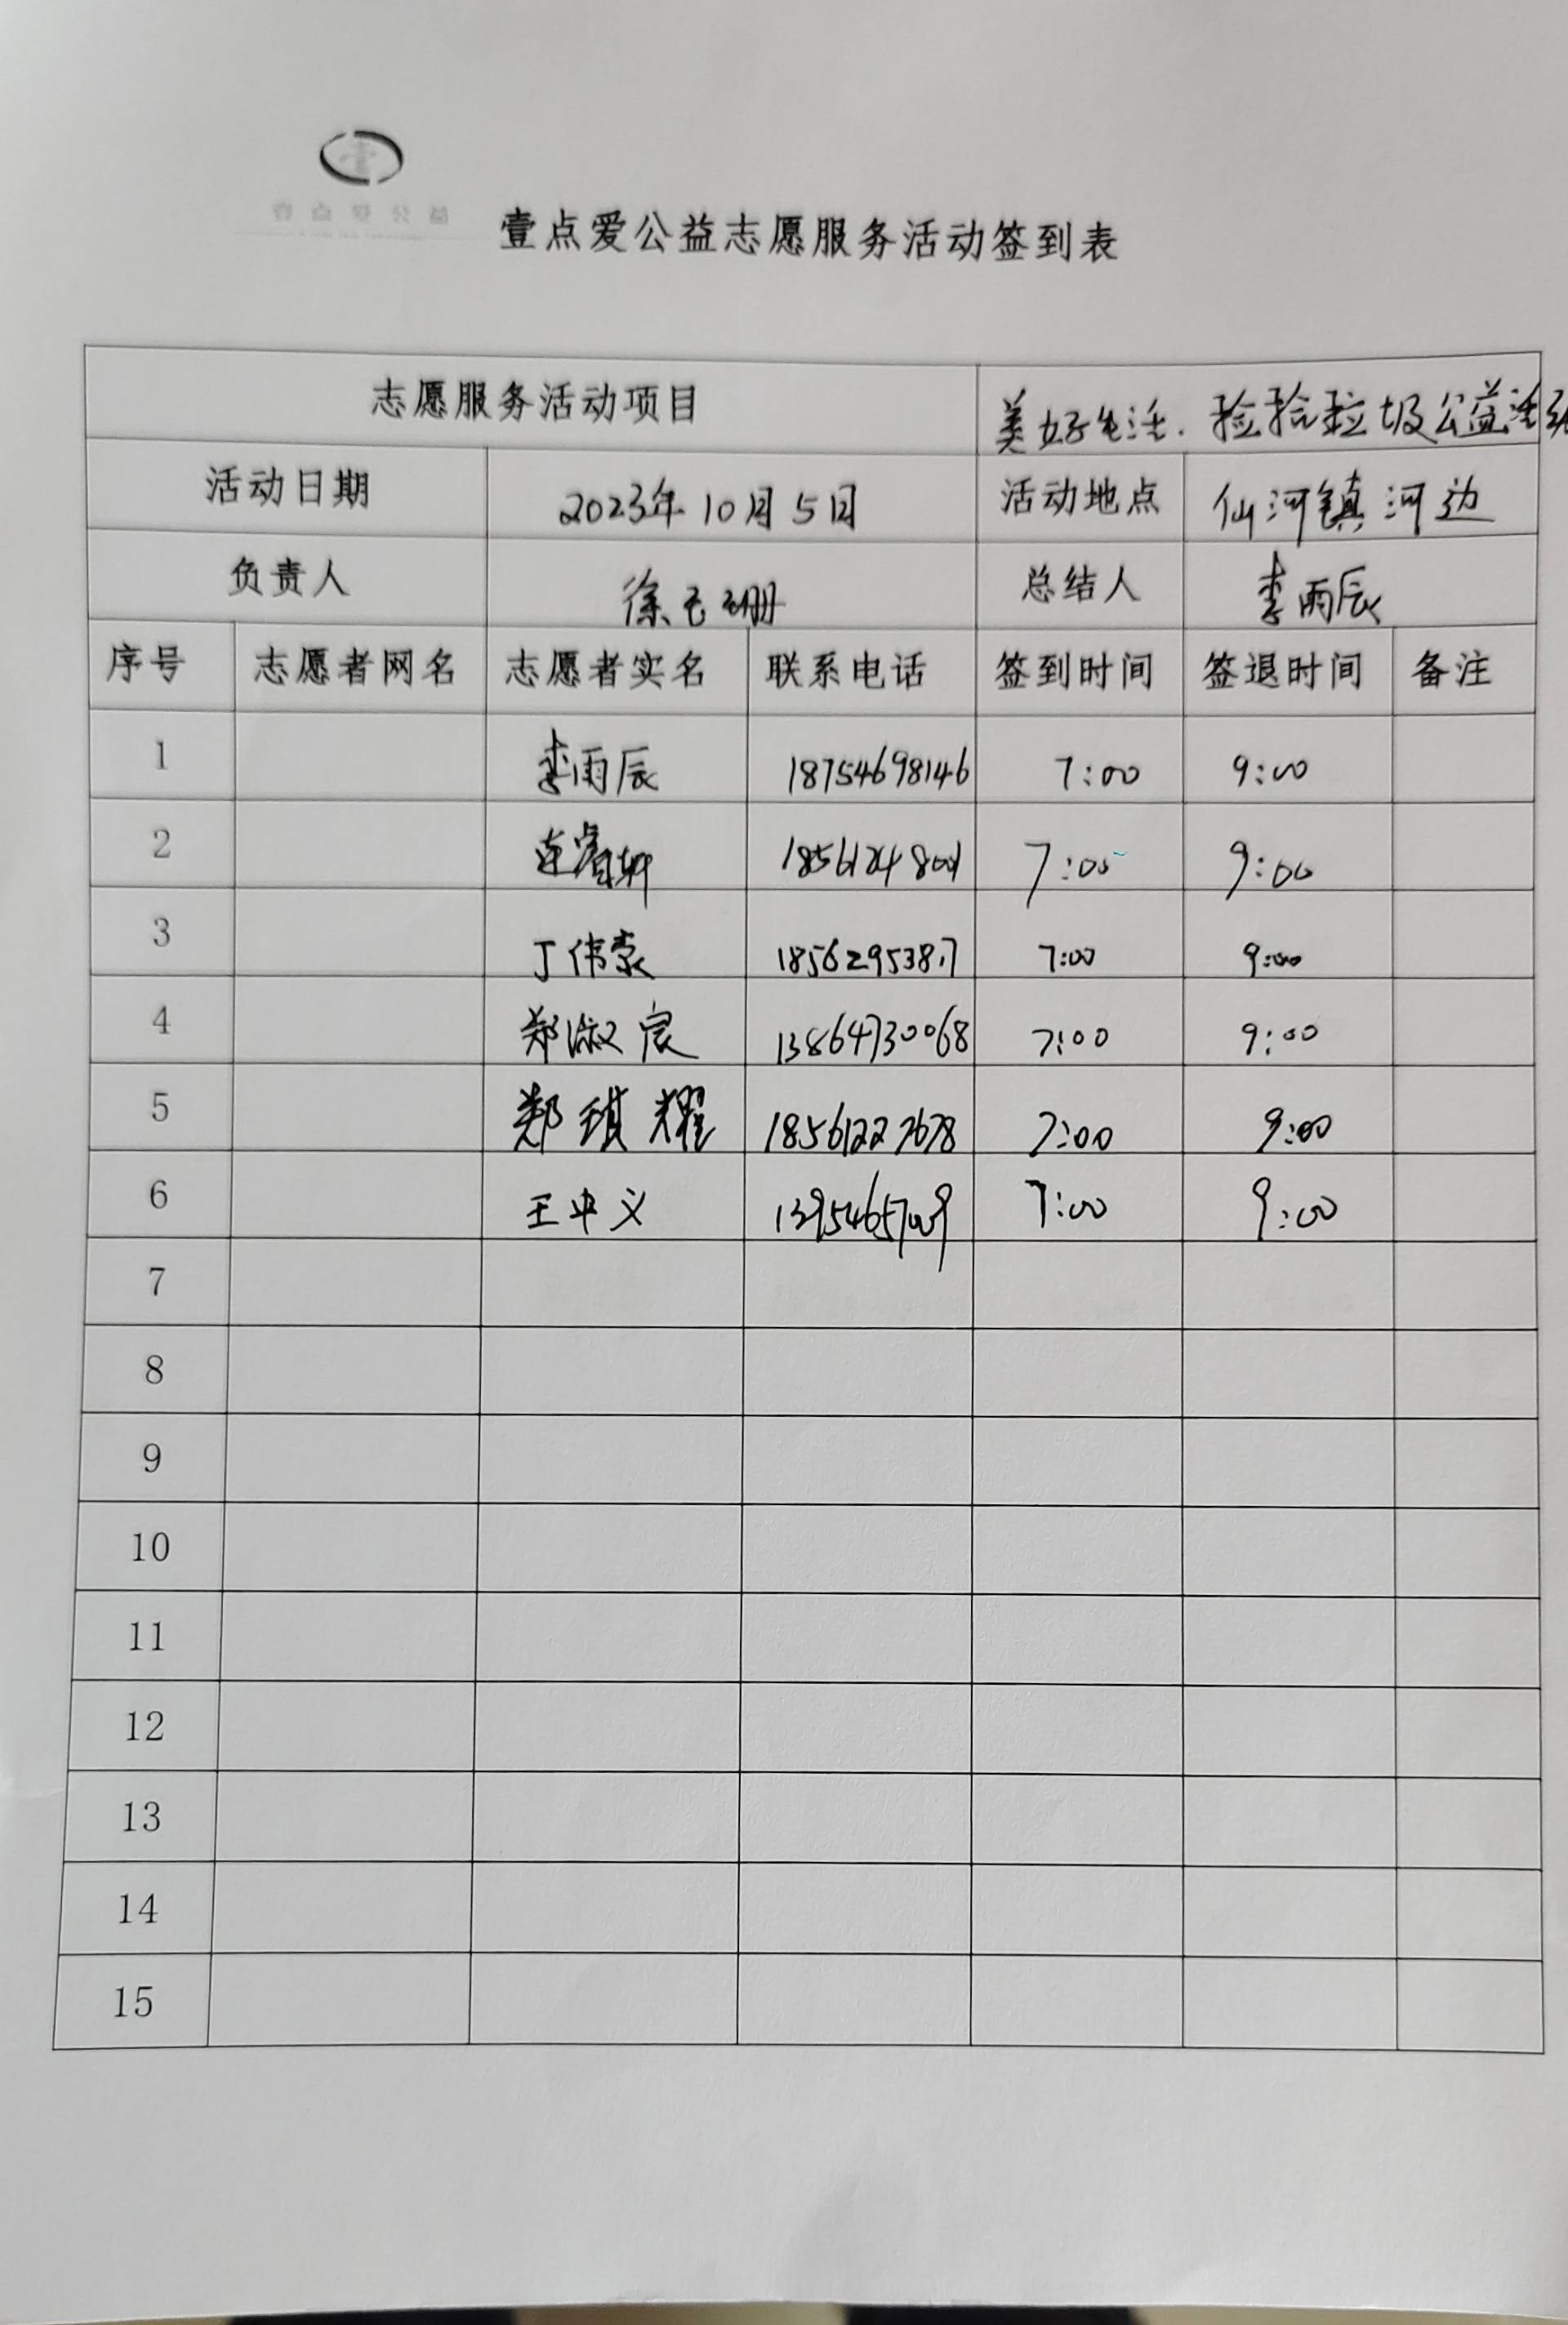 壹点爱公益
壹点爱公益志愿服务活动签到表
志愿服务活动项目 美好生活.捡拾垃圾公益活动
活动日期 2023年10月5日 活动地点 仙河镇河边
负责人 徐 珊 总结人 李雨辰
序号 志愿者网名 志愿者实名 联系电话 签到时间 签退时间 备注
1 李雨辰 18754698146 7:00 9:00
2 7:00 9:00
3 丁伟豪 7:00 9:00
4 郑淑宸 13864730068 7:00 9:00
5 郑琪耀 18561227678 7:00 9:00
6 王中义 13954657009 7:00 9:00
7
8
9
10
11
12
13
14
15